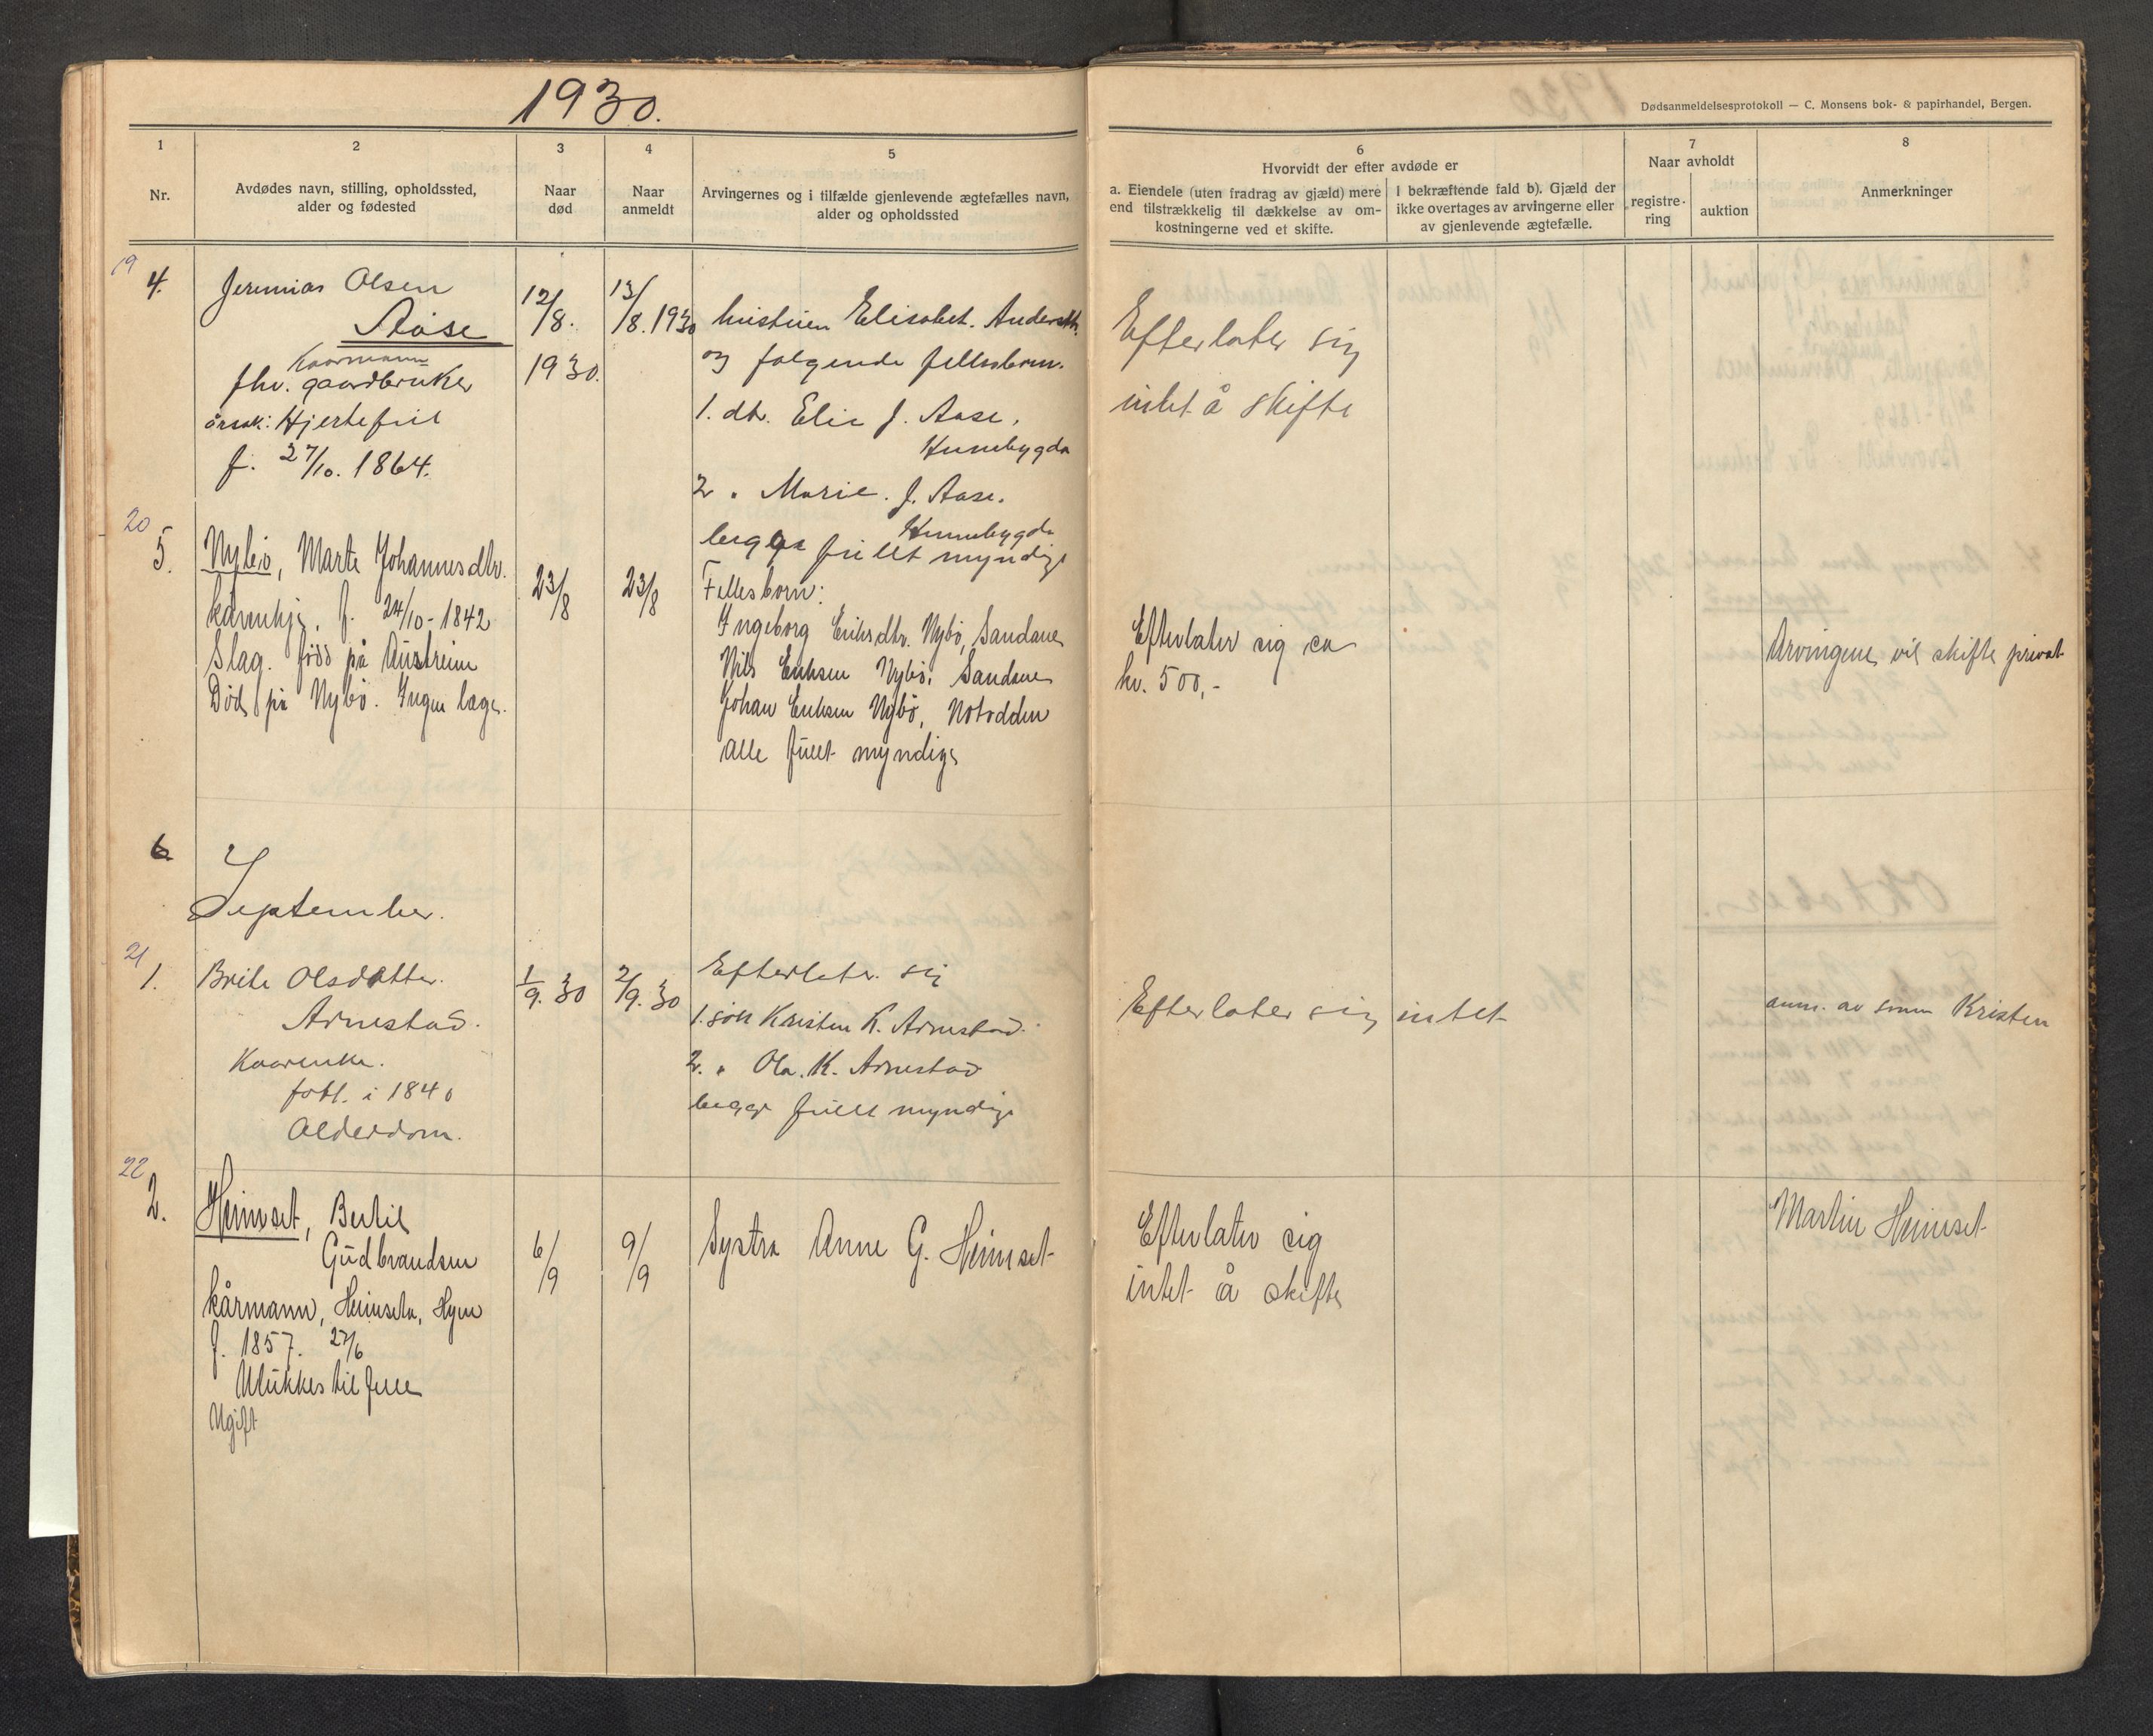 1930.
Dødsanmeldelsesprotokoll — C. Monsens bok- & papirhandel, Bergen.
1
Nr.
2
Avdødes navn, stilling, opholdssted,
alder og fødested
3
Naar
død
4
Naar
anmeldt
5
Arvingernes og i tilfælde gjenlevende ægtefælles navn,
alder og opholdssted
6
Hvorvidt der efter avdøde er
a. Eiendele (uten fradrag av gjæld) mere
end tilstrækkelig til dækkelse av om-
kostningerne ved et skifte.
I bekræftende fald b). Gjæld der
ikke overtages av arvingerne eller
av gjenlevende ægtefælle.
7
Naar avholdt
registre-
ring
auktion
8
Anmerkninger
19
4.
Jeremias Olsen
Aase
Kaarmann
fhv. gaardbruker
årsak: Hjertefeil
f. 27/10. 1864.
12/8.
1930.
13/8. 1930
hustruen Elisabet. Andersdtr.
og følgende fellesborn.
1. dtr. Elie J. Aase.
Hunebygda
2 " Marie. J. Aase.
Hunnebygda
begge fullt myndige
Efterlater sig
intet å skifte
20
5.
Nybø, Marte Johannesdtr.
kårenkje, f. 24/10-1842
Slag. født på Austreim
Død på Nybø. Ingen læge.
23/8
23/8
Fellesborn:
Ingeborg Eriksdtr. Nybø, Sandane
Nils Eriksen Nybø, Sandane
Johan Eriksen Nybø, Notodden
alle fullt myndige
Efterlater sig ca
kr. 500,-
Arvingene vil skifte privat
6
September.
21
1.
Brite Olsdatter.
Arnestad.
Kaarenke.
født. i 1840
Alderdom.
1/9. 30
2/9. 30
Efterlater sig
1. søn Kristen K. Arnestad.
2. " Ola. K. Arnestad
begge fullt myndige
Efterlater sig intet
anm. av sønn Kristen
22
2.
Heimset, Bertil
Gudbrandsen
kårmann, Heimseta, Hyen
f. 1857. 27/6
Ulukkestilfelle
Ugift
6/9
9/9
Systra Anne G. Heimset
Efterlater sig
intet å skifte
Martin Heimset